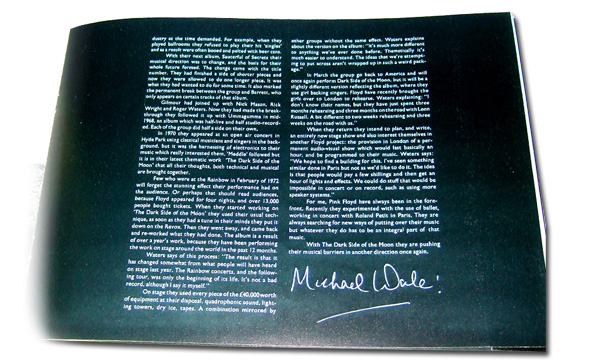 dustry at the time demanded. For example, when they
played ballrooms they refused to play their hit 'singles'
and as a result were often booed and pelted with beer cans.
With their next album, Saucerful of Secrets their
musical direction was to change, and the basis for their
whole future formed. The change came with the title
number. They had finished a side of shorter pieces and
now they were allowed to do one longer piece. It was
what they had wanted to do for some time. It also marked
the permanent break between the group and Barrett, who
only appears on certain tracks of that album.
Gilmour had joined up with Nick Mason, Rick
Wright and Roger Waters. Now they had made the break-
through they followed it up with Ummagumma in mid-
1968, an album which was half-live and half studio-record-
ed. Each of the group did half a side on their own.
In 1970 they appeared at an open air concert in
Hyde Park using classical musicians and singers in the back-
ground, but it was the harnessing of electronics to their
music which really interested them. 'Meddle' followed but
it is in their latest thematic work 'The Dark Side of the
Moon' that all their thoughts, both technical and musical
are brought together.
Few who were at the Rainbow in February of 1972
will forget the stunning effect their performance had on
the audience. Or perhaps that should read audiences,
because Floyd appeared for four nights, and over 13,000
people bought tickets. When they started working on
'The Dark Side of the Moon' they used their usual tech-
nique, as soon as they had a tune in their minds they put it
down on the Revox. Then they went away, and came back
and re-worked what they had done. The album is a result
of over a year's work, because they have been performing
the work on stage around the world in the past 12 months.
Waters says of this process: "The result is that it
has changed somewhat from what people will have heard
on stage last year. The Rainbow concerts, and the follow-
ing tour, was only the beginning of its life. It's not a bad
record, although I say it myself."
On stage they used every piece of the £40,000 worth
of equipment at their disposal, quadrophonic sound, light-
ing towers, dry ice, tapes. A combination mirrored by
other groups without the same effect. Waters explains
about the version on the album: "It's much more different
to anything we've ever done before. Thematically it's
much easier to understand. The ideas that we're attemp-
ting to put across aren't wrapped up in such a weird pack-
age."
In March the group go back to America and will
once again perform Dark Side of the Moon, but it will be a
slightly different version reflecting the album, where they
use girl backing singers. Floyd have recently brought the
girls over to London to rehearse. Waters explaining: "I
don't know their names, but they have just spent three
months rehearsing and three months on the road with Leon
Russell. A bit different to two weeks rehearsing and three
weeks on the road with us."
When they return they intend to plan, and write,
an entirely new stage show and also interest themselves in
another Floyd project: the provision in London of a per-
manent audio-visual show which would last basically an
hour, and be programmed to their music. Waters says:
"We hope to find a building for this. I've seen something
similar done in Paris but not as we'd like to do it. The idea
is that people would pay a few shillings and then get an
hour of lights and effects. We could do stuff that would be
impossible in concert or on record, such as using more
speaker systems."
For me, Pink Floyd have always been in the fore-
front. Recently they experimented with the use of ballet,
working in concert with Roland Petit in Paris. They are
always searching for new ways of putting over their music
but whatever they do has to be an integral part of that
music.
With The Dark Side of the Moon they are pushing
their musical barriers in another direction once again.
Michael Wale!